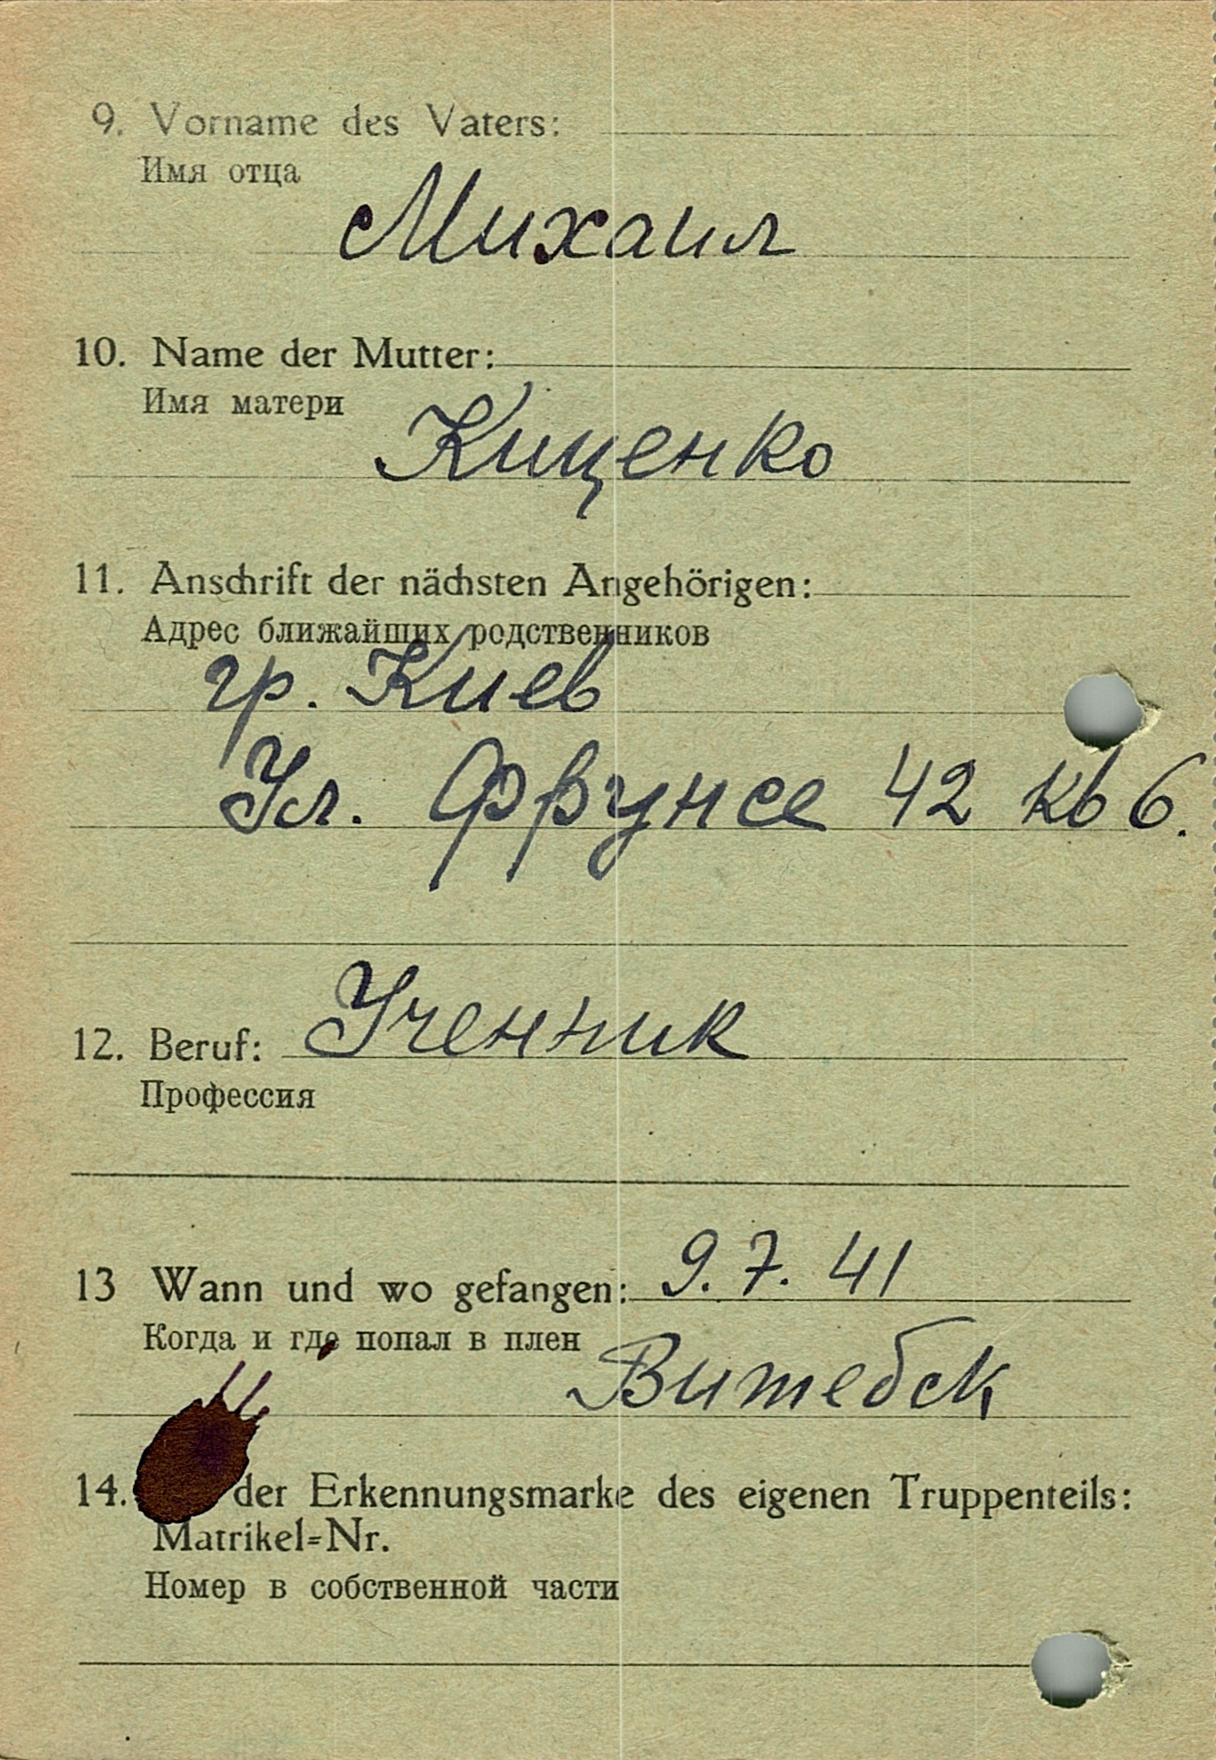 9. Vorname des Vaters:
Имя отца
Михаил
10. Name der Mutter:
Имя матери
Кищенко
11. Anschrift der nächsten Angehörigen:
Адрес ближайших родственников
гр. Киев
Ул. Фрунсе 42 кв 6.
12. Beruf: Ученник
Профессия
13 Wann und wo gefangen: 9. 7. 41
Когда и где попал в плен
Витебск
14. der Erkennungsmarke des eigenen Truppenteils:
Matrikel=Nr.
Номер в собственной части